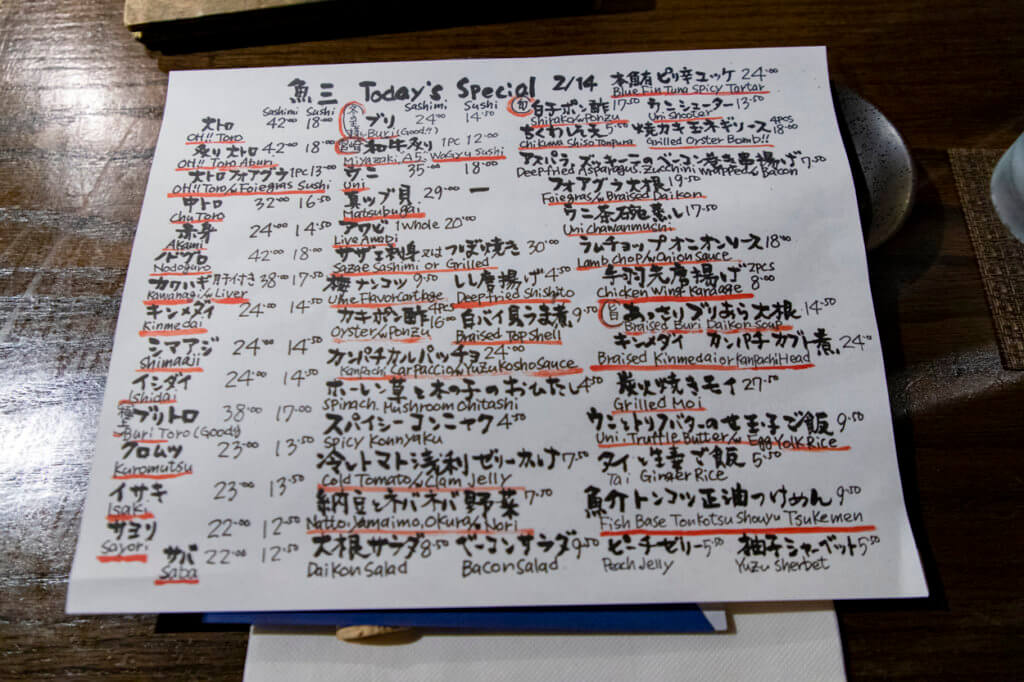 魚三 Today's Special 2/14
Sashimi Sushi
大トロ 42.00 18.00
OH!! Toro
炙り大トロ 42.00 18.00
OH!! Toro Aburi
大トロフォアグラ 1PC 13.00
OH!! Toro/w Foiegras Sushi
中トロ 32.00 16.50
Chu Toro
赤身 24.00 14.50
Akami
ノドグロ 42.00 18.00
Nodoguro
カワハギ 肝付き 38.00 17.50
Kawahagi/w Liver
キンメダイ 24.00 14.50
Kinmedai
シマアジ 24.00 14.50
Shimaaji
イシダイ 24.00 14.50
Ishidai
極上 ブリトロ 38.00 17.00
Buri Toro (Good!!)
クロムツ 23.00 13.50
Kuromutsu
イサキ 23.00 13.50
Isaki
サヨリ 22.00 12.50
Sayori
サバ 22.00 12.50
Saba
Sashimi Sushi
ブリ 24.00 14.50
Buri (Good!!)
宮崎 和牛炙り 1PC 12.00
Miyazaki, A5, Wagyu Sushi
ウニ 35.00 18.00
Uni
真ツブ貝 29.00 ー
Matsubugai
アワビ 1 Whole 20.00
Live Awabi
サザエ刺身又はつぼ焼き 30.00
Sazae Sashimi or Grilled
梅ナンコツ 9.50
Ume Flavor Cartilage
しし唐揚げ 4.50
Deep Fried Shishito
カキポン酢 4PCS 16.00
Oyster/w Ponzu
白バイ貝うま煮 9.50
Braised Top Shell
カンパチカルパッチョ 24.00
Kanpachi Carpaccio/w Yuzu Kosho Sauce
ホーレン草と木の子のおひたし 4.50
Spinach, Mushroom Ohitashi
スパイシーコンニャク 4.50
Spicy Konnyaku
冷しトマト浅利ゼリーかけ 7.50
Cold Tomato/w Clam Jelly
納豆とネバネバ野菜 7.50
Natto, Yamaimo, Okura/w Nori
大根サラダ 8.50
Daikon Salad
ベーコンサラダ 9.50
Bacon Salad
本鮪ピリ辛ユッケ 24.00
Blue Fin Tuna Spicy Tartar
旬 白子ポン酢 17.50
Shirako/w Ponzu
ウニシューター 13.50
Uni Shooter
ちくわしそ天 5.50
Chikuwa Shiso Tempura
焼カキ玉ネギソース 4PCS 18.00
Grilled Oyster Bomb!!
アスパラ、ズッキーニのベーコン巻き串揚げ 7.50
Deep Fried Asparagus, Zucchini wrapped/w Bacon
フォアグラ大根 19.50
Foiegras/w Braised Daikon
ウニ茶碗蒸し 17.50
Uni Chawanmushi
ラムチョップオニオンソース 18.00
Lamb Chop/w Onion Sauce
手羽元唐揚げ 2PCS 8.00
Chicken Wing Karaage
旨 あっさりブリあら大根 14.50
Braised Buri Daikon Soup
キンメダイ カンパチカブト煮 24.00
Braised Kinmedai or Kanpachi Head
炭火焼きモイ 27.50
Grilled Moi
ウニとトリフバターのせ玉子ご飯 9.50
Uni, Truffle Butter/w Egg Yolk Rice
タイと生姜ご飯 5.50
Tai Ginger Rice
魚介トンコツ正油つけめん 9.50
Fish Base Tonkotsu Shouyu Tsukemen
ピーチゼリー 5.50
Peach Jelly
柚子シャーベット 5.50
Yuzu Sherbet